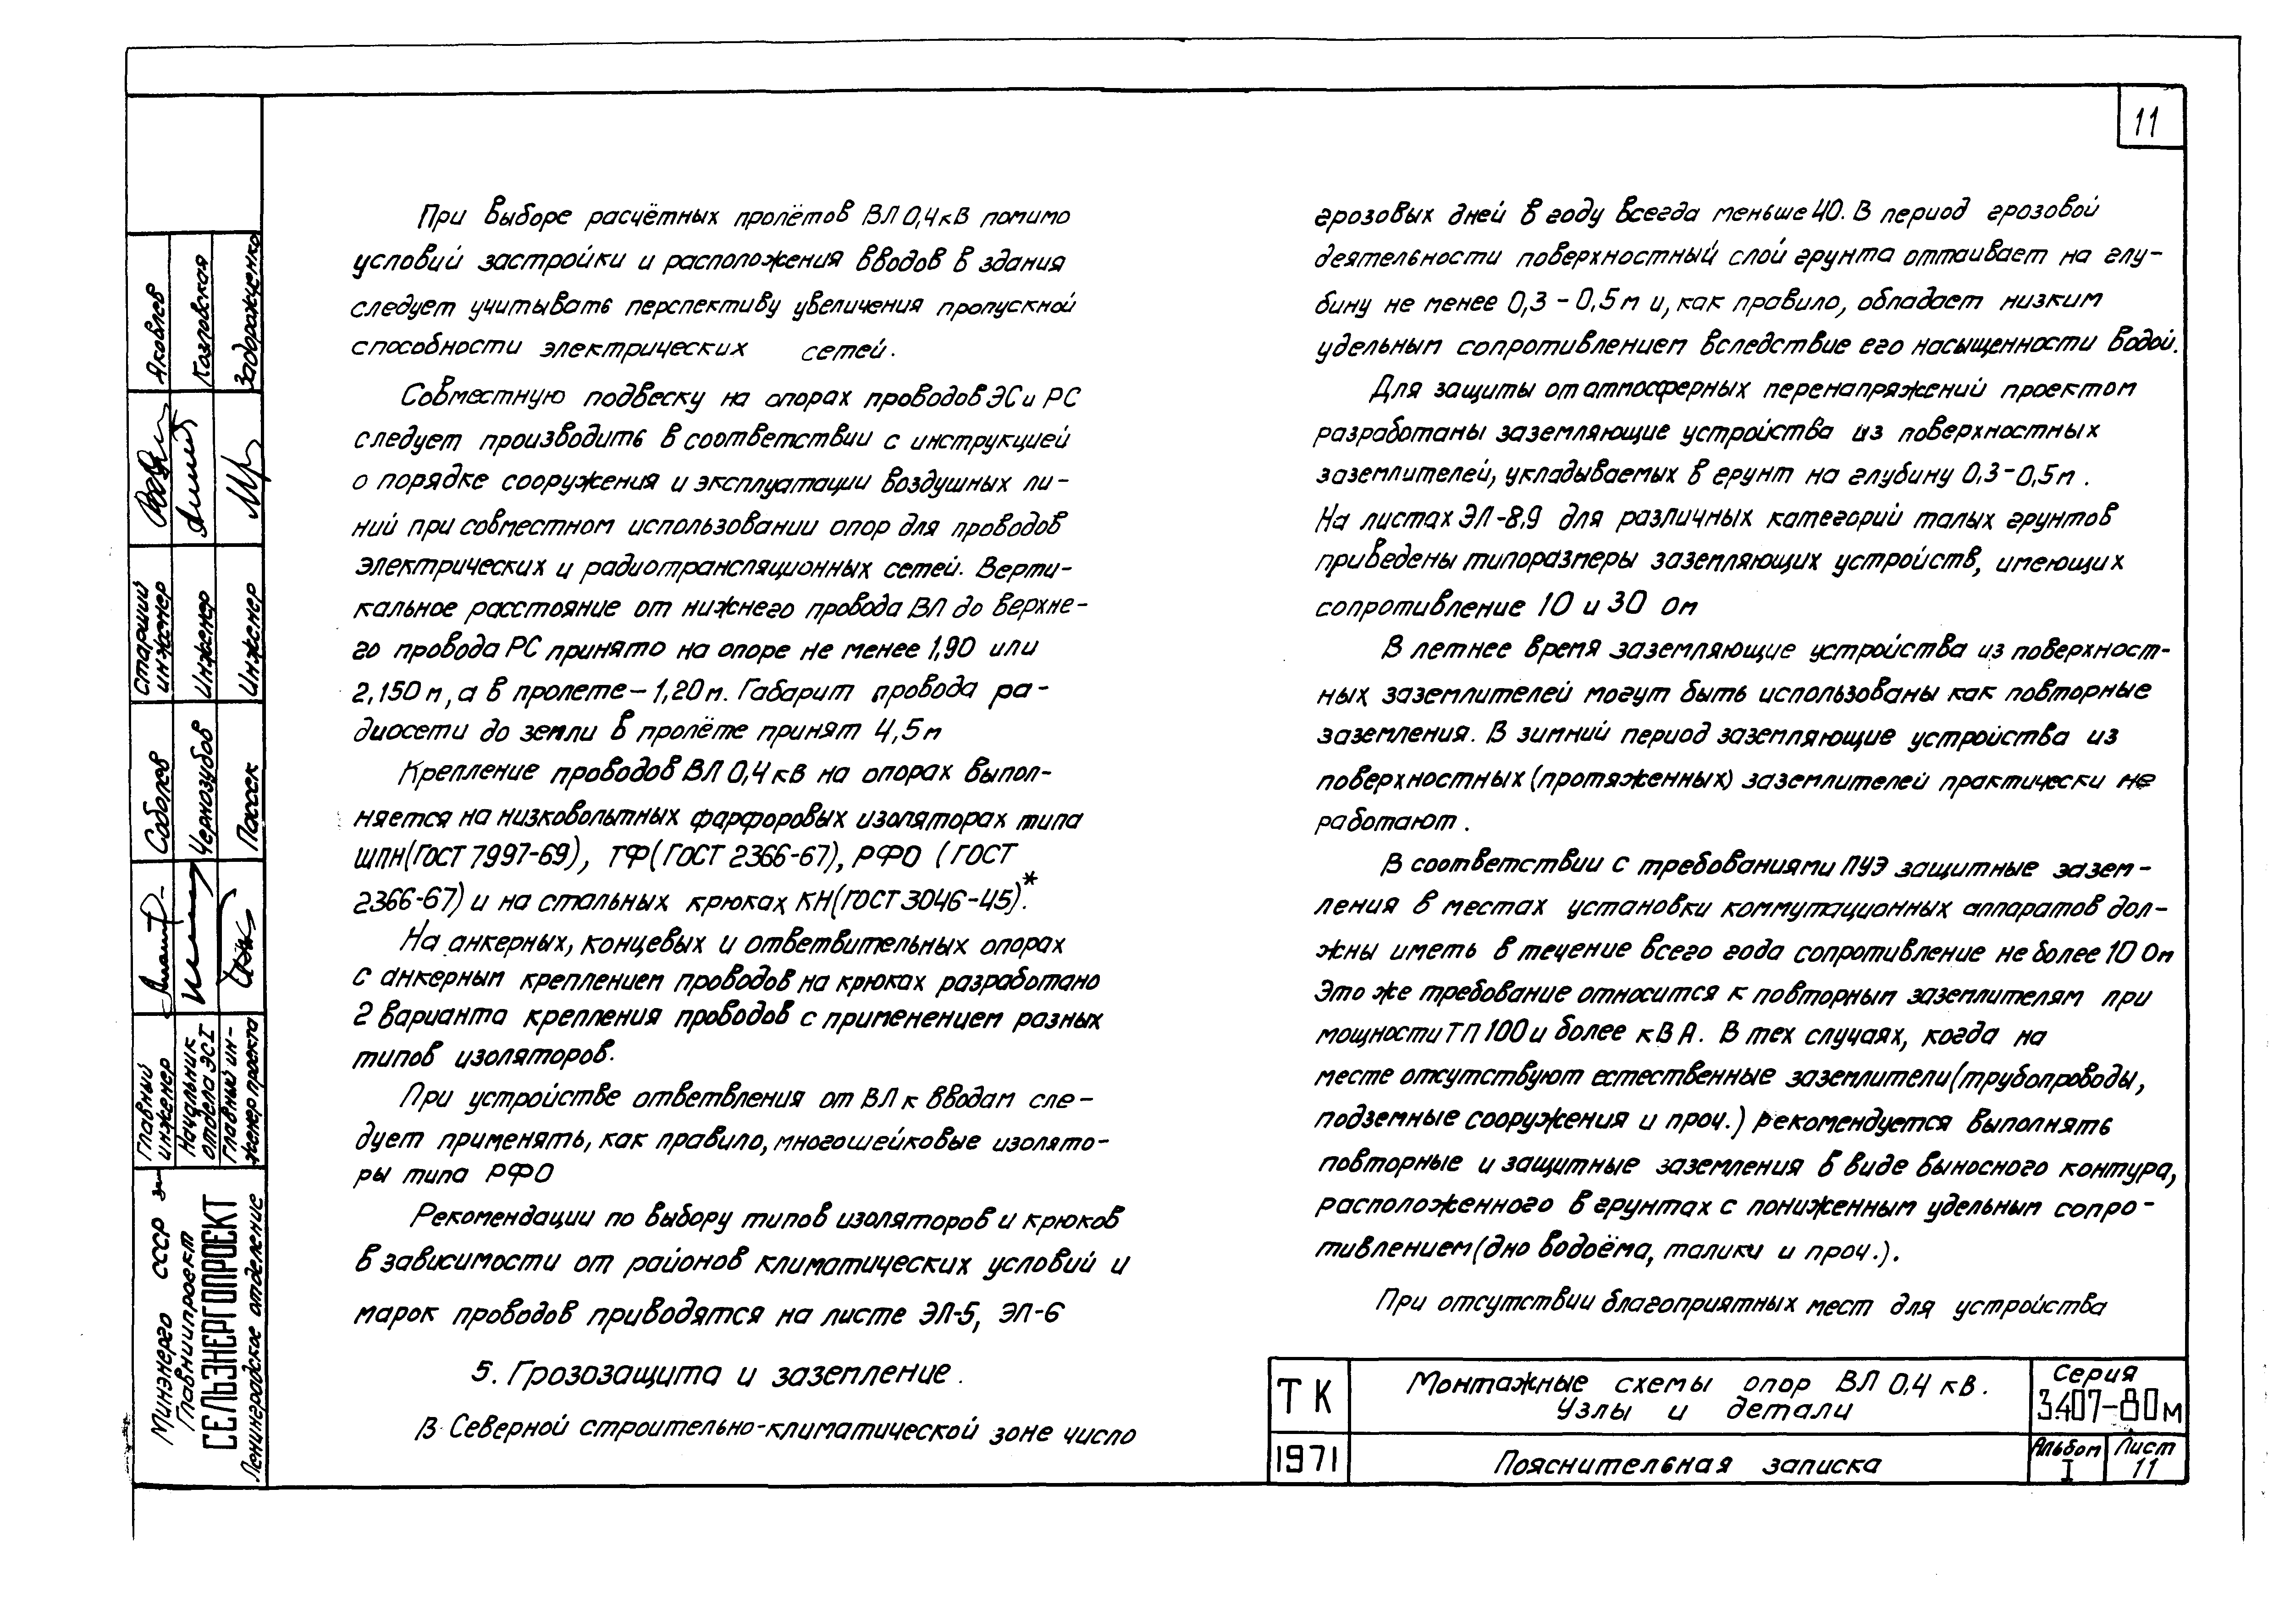 11
При выборе расчётных пролётов ВЛ 0,4 кВ помимо
условий застройки и расположения вводов в здания
следует учитывать перспективу увеличения пропускной
способности электрических сетей.
Совместную подвеску на опорах проводов ЭС и РС
следует производить в соответствии с инструкцией
о порядке сооружения и эксплуатации воздушных ли-
ний при совместном использовании опор для проводов
электрических и радиотрансляционных сетей. Верти-
кальное расстояние от нижнего провода ВЛ до верхне-
го провода РС принято на опоре не менее 1,90 или
2,150 м, а в пролете - 1,20 м. Габарит провода ра-
диосети до земли в пролёте принят 4,5 м
Крепление проводов ВЛ 0,4 кВ на опорах выпол-
няется на низковольтных фарфоровых изоляторах типа
ШПН (ГОСТ 7997-69), ТФ (ГОСТ 2366-67), РФО (ГОСТ
2366-67) и на стальных крюках КН (ГОСТ 3046-45)*.
На анкерных, концевых и ответвительных опорах
с анкерным креплением проводов на крюках разработано
2 варианта крепления проводов с применением разных
типов изоляторов.
При устройстве ответвления от ВЛ к вводам сле-
дует применять, как правило, многошейковые изолято-
ры типа РФО
Рекомендации по выбору типов изоляторов и крюков
в зависимости от районов климатических условий и
марок проводов приводятся на листе ЭЛ-5, ЭЛ-6
5. Грозозащита и заземление.
В Северной строительно-климатической зоне число
грозовых дней в году всегда меньше 40. В период грозовой
деятельности поверхностный слой грунта оттаивает на глу-
бину не менее 0,3 - 0,5 м и, как правило, обладает низким
удельным сопротивлением вследствие его насыщенности водой.
Для защиты от атмосферных перенапряжений проектом
разработаны заземляющие устройства из поверхностных
заземлителей, укладываемых в грунт на глубину 0,3-0,5 м.
На листах ЭЛ-8,9 для различных категорий талых грунтов
приведены типоразмеры заземляющих устройств, имеющих
сопротивление 10 и 30 ом
В летнее время заземляющие устройства из поверхност-
ных заземлителей могут быть использованы как повторные
заземления. В зимний период заземляющие устройства из
поверхностных (протяженных) заземлителей практически не
работают.
В соответствии с требованиями ПУЭ защитные зазем-
ления в местах установки коммутационных аппаратов дол-
жны иметь в течение всего года сопротивление не более 10 Ом
Это же требование относится к повторным заземлителям при
мощности ТП 100 и более кВА. В тех случаях, когда на
месте отсутствуют естественные заземлители (трубопроводы,
подземные сооружения и проч.) рекомендуется выполнять
повторные и защитные заземления в виде выносного контура,
расположенного в грунтах с пониженным удельным сопро-
тивлением (дно водоёма, талики и проч.).
При отсутствии благоприятных мест для устройства
ТК
1971
Монтажные схемы опор ВЛ 0,4 кВ.
Узлы и детали
Пояснительная записка
Серия
3.407-80м
Альбом
I
Лист
11
Минэнерго СССР
Главниипроект
СЕЛЬЭНЕРГОПРОЕКТ
Ленинградское отделение
Главный
инженер
Начальник
отдела ЭС I
Главный ин-
женер проекта
Соболев
Чернозубов
Пассек
Старший
инженер
Инженер
Инженер
Яковлев
Казловская
Задорожченко